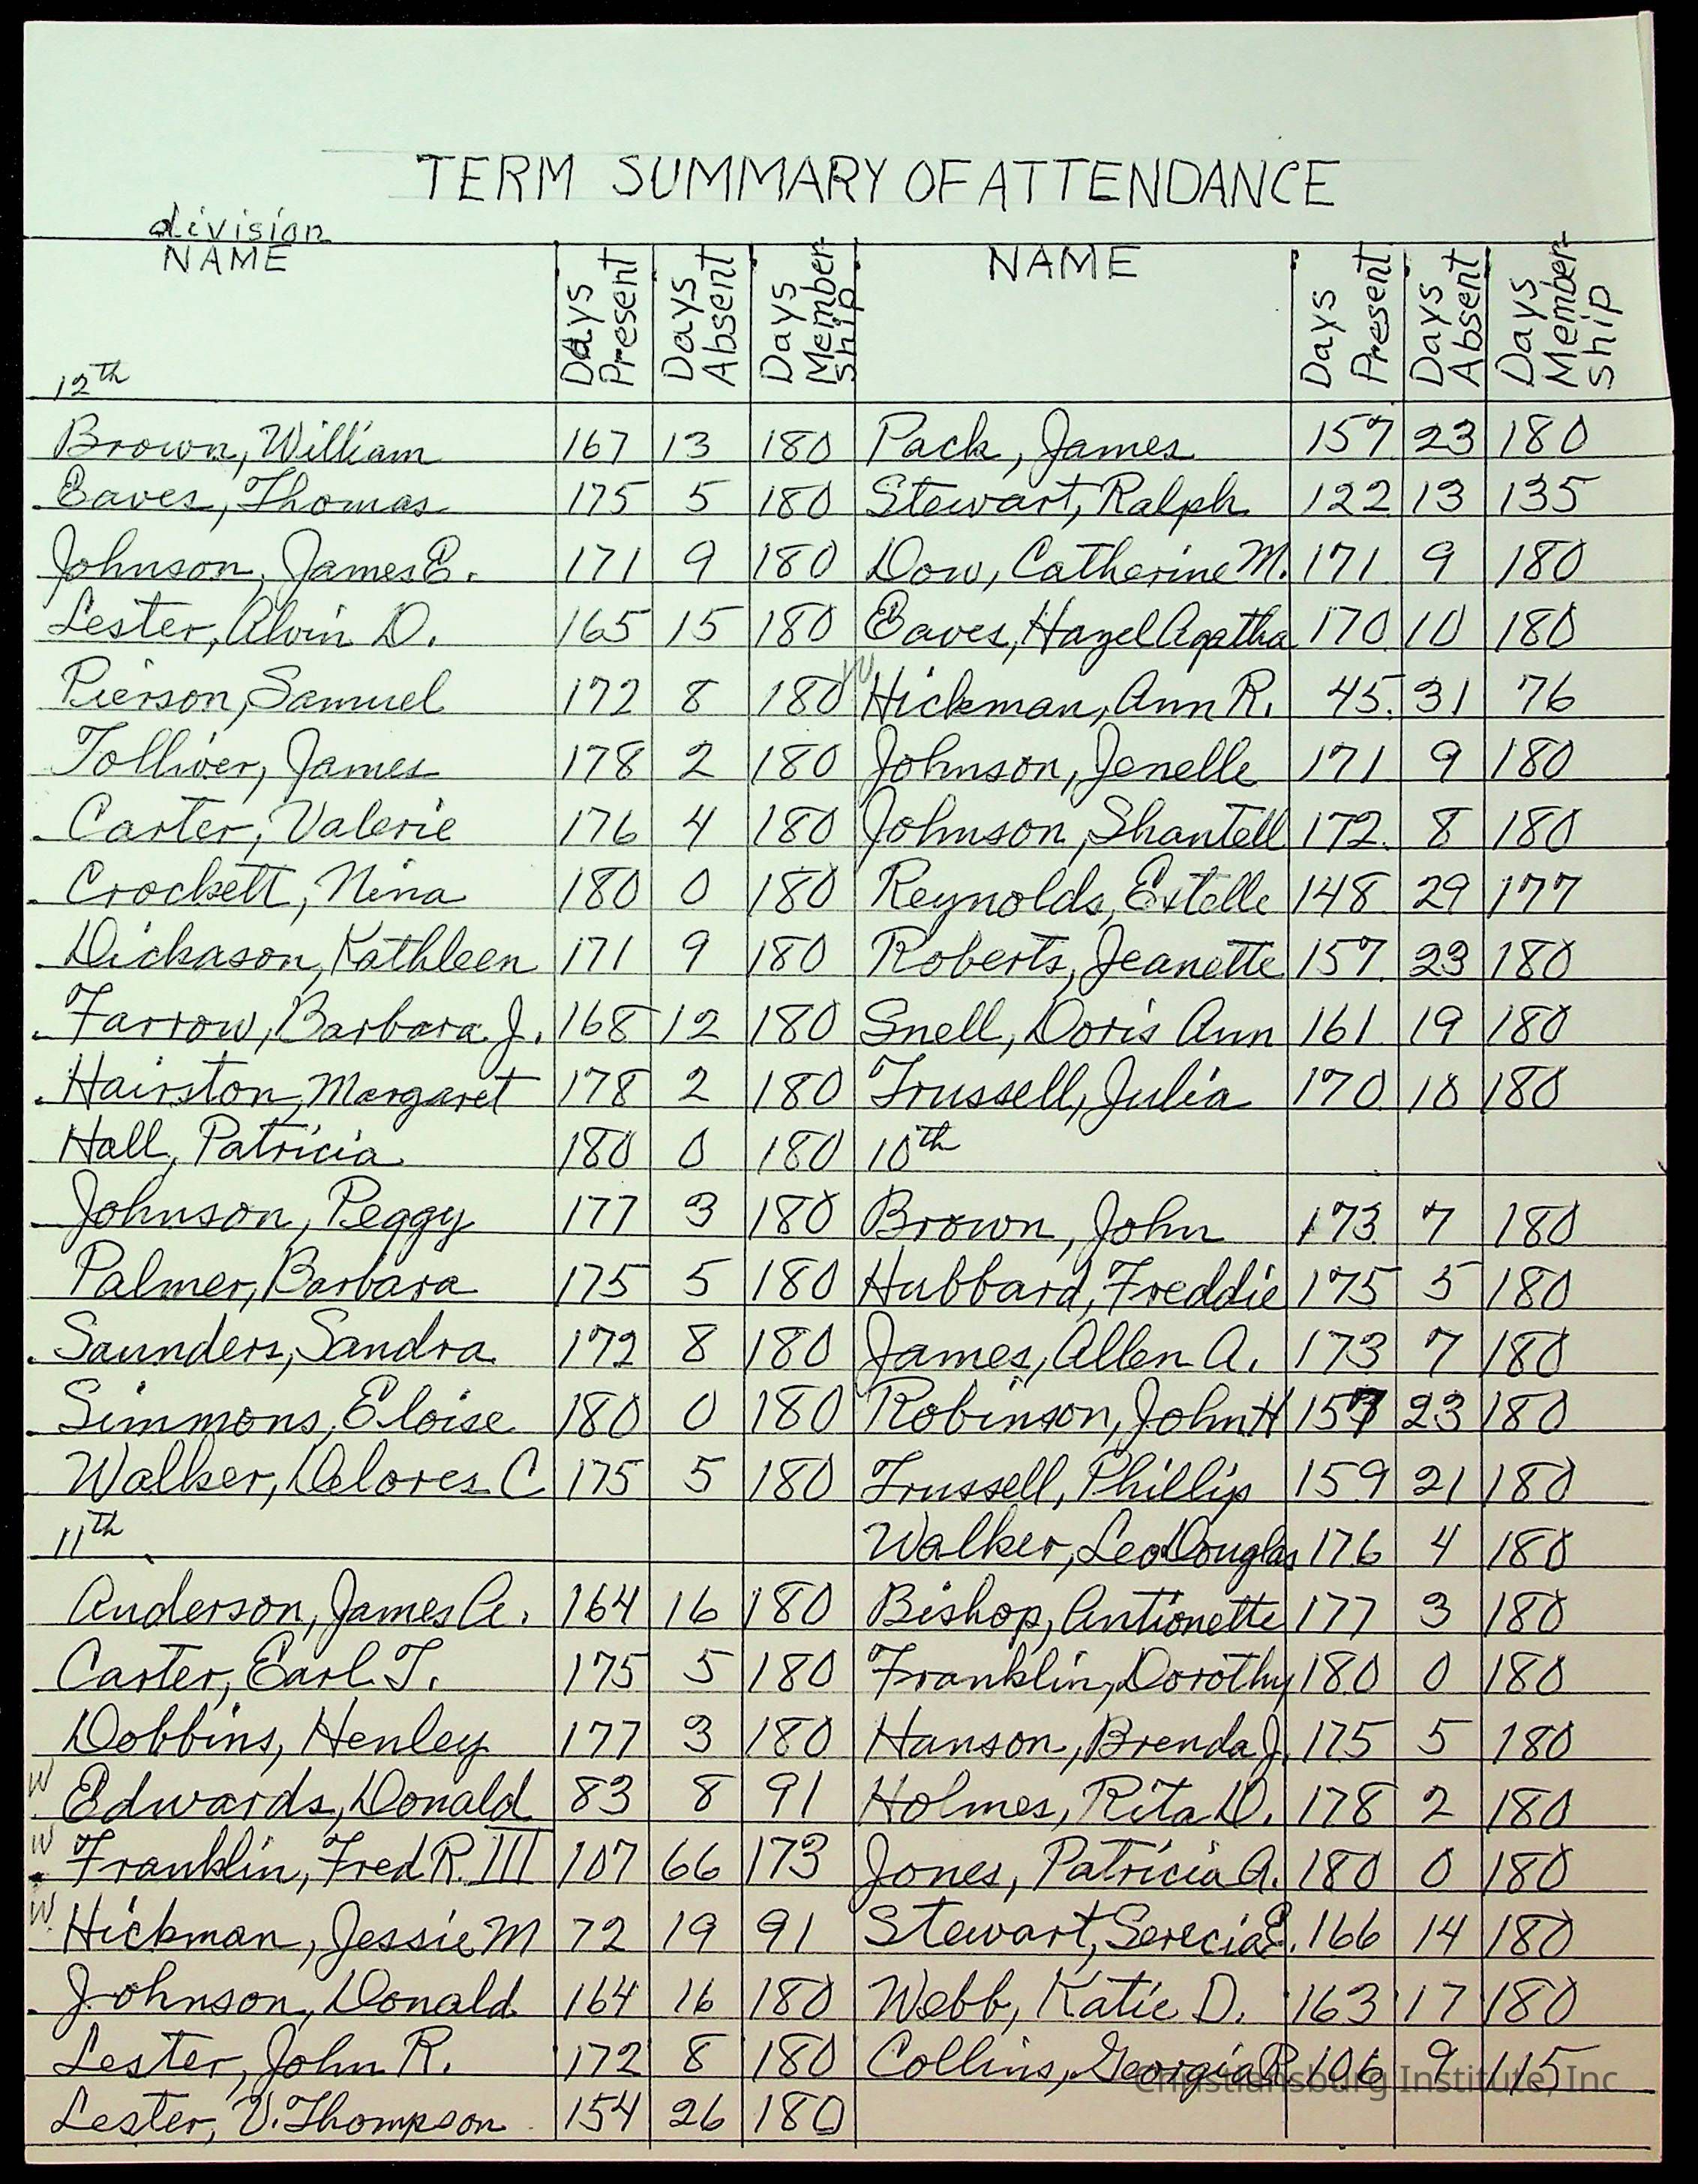 TERM SUMMARY OF ATTENDANCE
division
NAME
Days Present
Days Absent
Days Membership
NAME
Days Present
Days Absent
Days Member ship
12th
Brown, William 167 13 180
Eaves, Thomas 175 5 180
Johnson, James E. 171 9 180
Lester, Alvin D. 165 15 180
Pierson, Samuel 172 8 180
Tolliver, James 178 2 180
Carter, Valerie 176 4 180
Crockett, Nina 180 0 180
Dickason, Kathleen 171 9 180
Farrow, Barbara J. 168 12 180
Hairston, Margaret 178 2 180
Hall, Patricia 180 0 180
Johnson, Peggy 177 3 180
Palmer, Barbara 175 5 180
Saunders, Sandra 172 8 180
Simmons, Eloise 180 0 180
Walker, Delores C 175 5 180
11th
Anderson, James A. 164 16 180
Carter, Earl T. 175 5 180
Dobbins, Henley 177 3 180
W Edwards, Donald 83 8 91
W Franklin, Fred R. III 107 66 173
W Hickman, Jessie M 72 19 91
Johnson, Donald 164 16 180
Lester, John R. 172 8 180
Lester, V. Thompson 154 26 180
Pack, James 157 23 180
Stewart, Ralph 122 13 135
Dow, Catherine M. 171 9 180
Eaves, Hazel Agatha 170 10 180
W Hickman, Ann R. 45 31 76
Johnson, Jenelle 171 9 180
Johnson, Shantell 172 8 180
Reynolds, Estelle 148 29 177
Roberts, Jeanette 157 23 180
Snell, Doris Ann 161 19 180
Trussell, Julia 170 10 180
10th
Brown, John 173 7 180
Hubbard, Freddie 175 5 180
James, Allen A. 173 7 180
Robinson, John H 157 23 180
Trussell, Phillip 159 21 180
Walker, Leo Douglas 176 4 180
Bishop, Antionette 177 3 180
Franklin, Dorothy 180 0 180
Hanson, Brenda J. 175 5 180
Holmes, Rita D. 178 2 180
Jones, Patricia A. 180 0 180
Stewart, Serecia E. 166 14 180
Webb, Katie D. 163 17 180
Collins, Georgia R 106 9 115
Christiansburg Institute, Inc